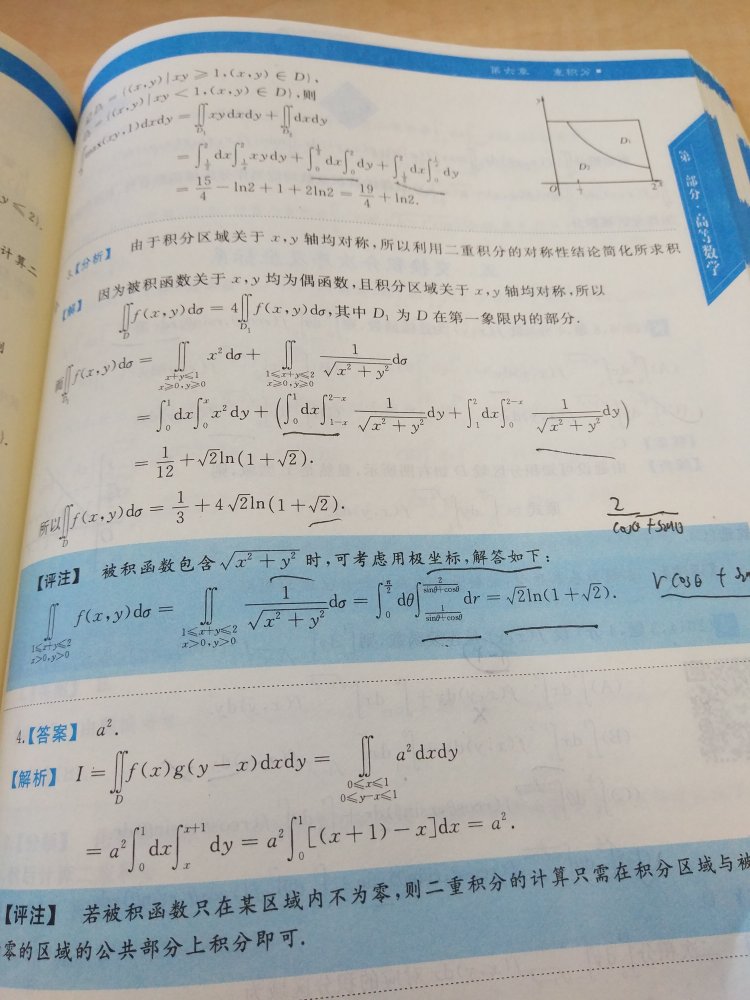 第六章 重积分
= {(x,y)|xy⩾1,(x,y)∈D},
= {(x,y)|xy<1,(x,y)∈D},则
max(xy,1)dxdy = ∬_{D₁} xydxdy + ∬_{D₂} dxdy
= ∫_{1/2}^{2} dx∫_{1/x}^{2} xydy + ∫_{0}^{1/2} dx∫_{0}^{2} dy + ∫_{1/2}^{2} dx∫_{0}^{1/x} dy
= 15/4 − ln2 + 1 + 2ln2 = 19/4 + ln2.
y
D₁
D₂
O 2 x
第 部分·高等数学
y⩽2).
计算二
3.【分析】 由于积分区域关于 x,y 轴均对称,所以利用二重积分的对称性结论简化所求积
【解】 因为被积函数关于 x,y 均为偶函数,且积分区域关于 x,y 轴均对称,所以
∬_{D} f(x,y)dσ = 4∬_{D₁} f(x,y)dσ,其中 D₁ 为 D 在第一象限内的部分.
而∬_{D₁} f(x,y)dσ = ∬_{x+y⩽1, x⩾0,y⩾0} x²dσ + ∬_{1⩽x+y⩽2, x⩾0,y⩾0} 1/√(x²+y²) dσ
= ∫_{0}^{1} dx∫_{0}^{x} x²dy + (∫_{0}^{1} dx∫_{1−x}^{2−x} 1/√(x²+y²) dy + ∫_{1}^{2} dx∫_{0}^{2−x} 1/√(x²+y²) dy)
= 1/12 + √2ln(1+√2).
所以∬_{D} f(x,y)dσ = 1/3 + 4√2ln(1+√2).
2/(cosθ+sinθ)
【评注】 被积函数包含 √(x²+y²) 时,可考虑用极坐标,解答如下:
r cosθ +
∬_{1⩽x+y⩽2, x>0,y>0} f(x,y)dσ = ∬_{1⩽x+y⩽2, x>0,y>0} 1/√(x²+y²) dσ = ∫_{0}^{π/2} dθ∫_{1/(sinθ+cosθ)}^{2/(sinθ+cosθ)} dr = √2ln(1+√2).
4.【答案】 a².
【解析】 I = ∬_{D} f(x)g(y−x)dxdy = ∬_{0⩽x⩽1, 0⩽y−x⩽1} a²dxdy
= a²∫_{0}^{1} dx∫_{x}^{x+1} dy = a²∫_{0}^{1} [(x+1)−x]dx = a².
【评注】 若被积函数只在某区域内不为零,则二重积分的计算只需在积分区域与被
零的区域的公共部分上积分即可.